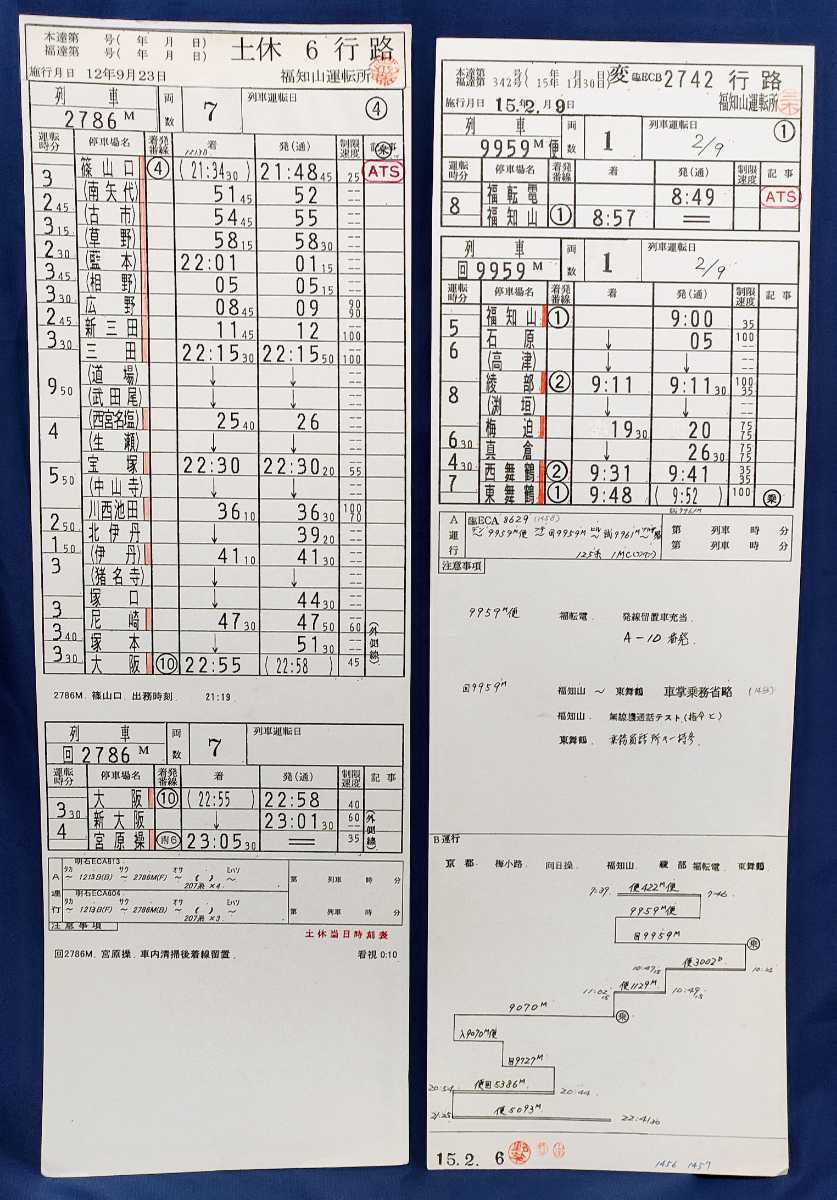 本達第 号( 年 月 日)
福達第 号( 年 月 日)
土休 6 行路
施行月日 12年9月23日 福知山運転所
列車 両数 7 列車運転日 ④
2786M
運転時分 停車場名 着発番線 着 発(通) 制限速度 記事
1213B 乗
3 篠山口 ④ (21:34 30) 21:48 45 25 ATS
2 45 (南矢代) 51 45 52 --
3 15 (古市) 54 45 55 --
2 30 (草野) 58 15 58 30 --
3 45 (藍本) 22:01 01 15 --
3 30 (相野) 05 05 15 --
2 45 広野 08 45 09 90 90
3 30 新三田 11 45 12 -- 100
三田 22:15 30 22:15 50 -- 100
9 50 (道場) ↓ ↓ --
(武田尾) ↓ ↓ --
4 (西宮名塩) 25 40 26 --
(生瀬) ↓ ↓ --
5 50 宝塚 22:30 22:30 20 55
(中山寺) ↓ ↓ --
2 50 川西池田 36 10 36 30 100 70
1 50 北伊丹 ↓ 39 20 --
3 (伊丹) 41 10 41 30 --
(猪名寺) ↓ ↓ --
3 塚口 ↓ 44 30 --
3 40 尼崎 47 30 47 50 60 (外側線)
3 30 塚本 ↓ 51 30 --
大阪 ⑩ 22:55 (22:58) 45
2786M.篠山口.出務時刻. 21:19
列車 両数 7 列車運転日
回2786M
運転時分 停車場名 着発番線 着 発(通) 制限速度 記事
3 30 大阪 ⑩ (22:55) 22:58 40
4 新大阪 ↓ 23:01 30 60 -- (外側線)
宮原操 吉6 23:05 30 == 35
A運行 明石ECA613
タカ サウ オサ ミハソ
~ 1213B(B) ~ 2786M(F) ~ ( ) ~
207系×4 第 列車 時 分
明石ECA604
~ 1213B(F) ~ 2786M(B) ~ ( ) ~
207系×3 第 列車 時 分
注意事項
土休当日時刻表
回2786M.宮原操.車内清掃後着線留置. 看視0:10
本達第 号( 年 月 日)
福達第 342号(15年 1月30日)
変 臨ECB2742 行路
施行月日 15.2.月9日 福知山運転所
列車 両数 1 列車運転日 2/9 ①
9959M便
運転時分 停車場名 着発番線 着 発(通) 制限速度 記事
8 福転電 8:49 ATS
福知山 ① 8:57 ==
列車 両数 1 列車運転日 2/9
回9959M
運転時分 停車場名 着発番線 着 発(通) 制限速度 記事
5 福知山 ① 9:00 35
6 石原 ↓ 05 100 --
(高津) ↓ ↓ --
8 綾部 ② 9:11 9:11 30 100 35
(渕垣) ↓ ↓ --
6 30 梅迫 19 30 20 75 75
4 30 真倉 ↓ 26 30 75 75
7 西舞鶴 ② 9:31 9:41 35 35
東舞鶴 ① 9:48 (9:52) 100 乗
試9961M
A運行 臨ECA 8629 (1456)
~ 9959M便 ~ 回9959M ~ 試9961M ~
125系 1MC(ワンマン)
第 列車 時 分
第 列車 時 分
注意事項
9959M便 福転電 発線留置車充当
A-10番発
回9959M 福知山 ~ 東舞鶴 車掌乗務省略
福知山. 無線機通話テスト(指令と)
東舞鶴.
B運行
京都. 梅小路 向日操. 福知山. 綾部 福転電 東舞鶴
7:39. 便422M便 7:46
9959M便
回9959M 乗
10:47 15 便3002D
11:02 15 便1129M 10:49 15
9070M 乗
入9070M便
回9727M
20:54 便回5386M 20:44
21:25 便5093M 22:41
15.2. 6
1456 1457